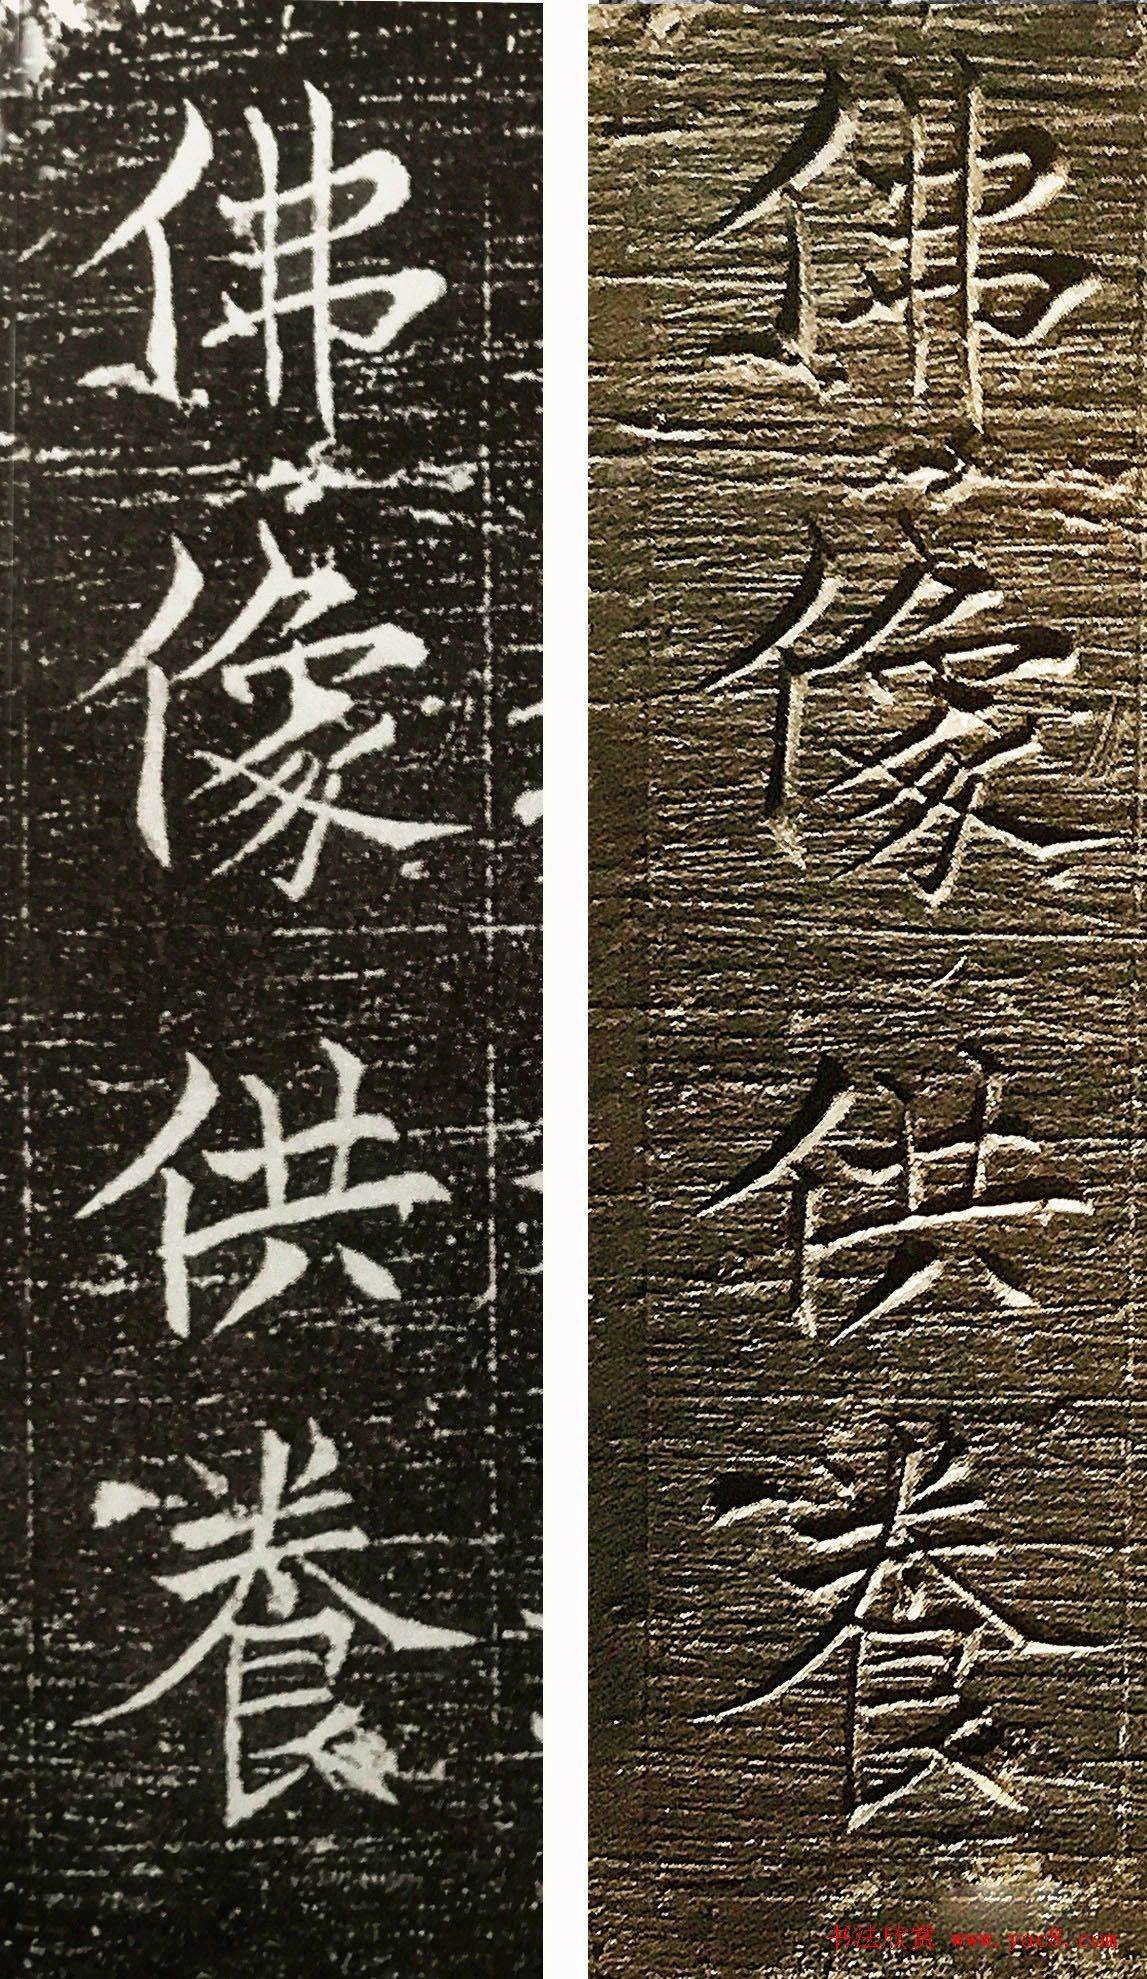 佛像供養
佛像供養
书法欣赏 www.yac8.com